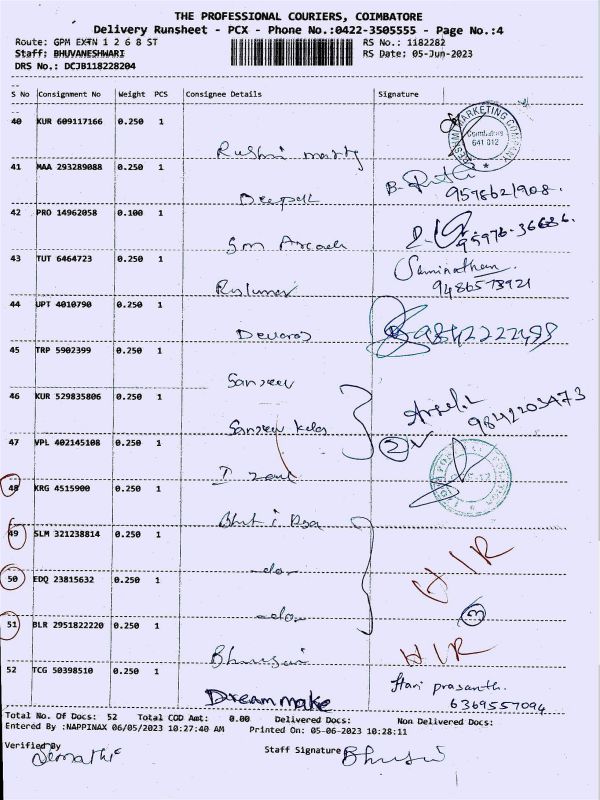 THE PROFESSIONAL COURIERS, COIMBATORE
Delivery Runsheet - PCX - Phone No.:0422-3505555 - Page No.:4
Route: GPM EXTN 1 2 6 8 ST RS No.: 1182282
Staff: BHUVANESHWARI RS Date: 05-Jun-2023
DRS No.: DCJB118228204
S No Consignment No Weight PCS Consignee Details Signature
40 KUR 609117166 0.250 1
MARKETING COMPANY
Coimbatore
641 012
41 MAA 293289088 0.250 1
Deepak
9598621908.
42 PRO 14962058 0.100 1
Sm Arcade
95976-36686.
43 TUT 6464723 0.250 1
Saminathan
9486573921
44 UPT 4010790 0.250 1
Devaraj
9842222493
45 TRP 5902399 0.250 1
Sanjeev
46 KUR 529835806 0.250 1
Sanjeev
9842203473
2
47 VPL 402145108 0.250 1
48 KRG 4515900 0.250 1
49 SLM 321238814 0.250 1
-do-
H I R
50 EDQ 23815632 0.250 1
-do-
3
51 BLR 2951822220 0.250 1
H I R
52 TCG 50398510 0.250 1
Dream make
Hari prasanth.
6369557094
Total No. Of Docs: 52 Total COD Amt: 0.00 Delivered Docs: Non Delivered Docs:
Entered By :NAPPINAX 06/05/2023 10:27:40 AM Printed On: 05-06-2023 10:28:11
Verified By Staff Signature